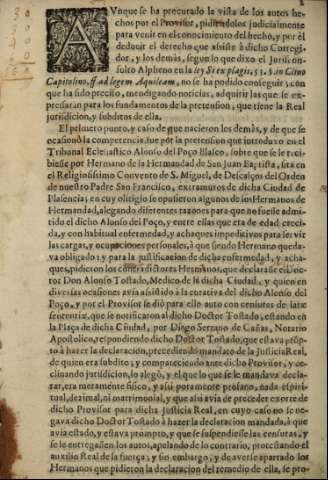 AVnque se ha procurado la vista de los autos hechos por el Provisor, pidiendolos judicialmente
para venir en el conocimiento del hecho, y por él
deducir el derecho que assiste à dicho Corregidor, y los demàs, segun lo que dixo el Jurisconsulto Alpheno en la ley Si ex plagis, 52. §. in Clivo
Capitolino, ff. ad legem Aquiliam, no se ha podido conseguir; con
que ha sido precisso, mendigando noticias, adquirir las que se expressaràn para los fundamentos de la pretension, que tiene la Real
jurisdicion, y subditos de ella.
El primero punto, y caso de que nacieron los demàs, y de que se
ocasionò la competencia, fue por la pretension que introduxo en el
Tribunal Eclesiastico Alonso del Poço Blasco, sobre que se le recibiesse por Hermano de la Hermandad de San Juan Bautista, sita en
el Religiosissimo Convento de S. Miguel, de Descalços del Orden
de nuestro Padre San Francisco, extramuros de dicha Ciudad de
Plasencia; en cuyo litigio se opusieron algunos de los Hermanos de
Hermandad, alegando diferentes razones para que no fuesse admitido el dicho Alonso del Poço, y entre ellas que era de edad crecida, y con habitual enfermedad, y achaques impeditivos para servir
las cargas, y ocupaciones personales, à que siendo Hermano quedava obligado: y para la justificacion de dicha enfermedad, y achaques, pidieron los contradictores Hermanos, que declarasse el Doctor Don Alonso Tostado, Medico de dicha Ciudad, y quien en
diversas ocasiones avia assistido à la curativa del dicho Alonso del
Poço, y por el Provisor se diò para ello auto con censuras de latæ
sententiæ, que se notificaron al dicho Doctor Tostado, estando en
la Plaça de dicha Ciudad, por Diego Serrano de Cañas, Notario
Apostolico, respondiendo dicho Doctor Tostado, que estava prompto à hazer la declaracion, precediendo mandato de la Justicia Real,
de quien era subdito, y compareciendo ante dicho Provisor, y declinando jurisdicion, lo alegò, y el que lo que se le mandava declarar, era meramente fisico, y assi puramente profano, nada espiritual, dezimal, ni matrimonial, y que assi avia de preceder exorte de
dicho Provisor para dicha Justicia Real, en cuyo caso no se negava dicho Doctor Tostado à hazer la declaracion mandada, à que
avia estado, y estava prompto, y que se suspendiesse las censuras, y
se le entregassen los autos, apelando de lo contrario, protestando el
auxilio Real de la fuerça; y sin embargo, y de averse apartado los
Hermanos que pidieron la declaracion del remedio de ella, se pro-